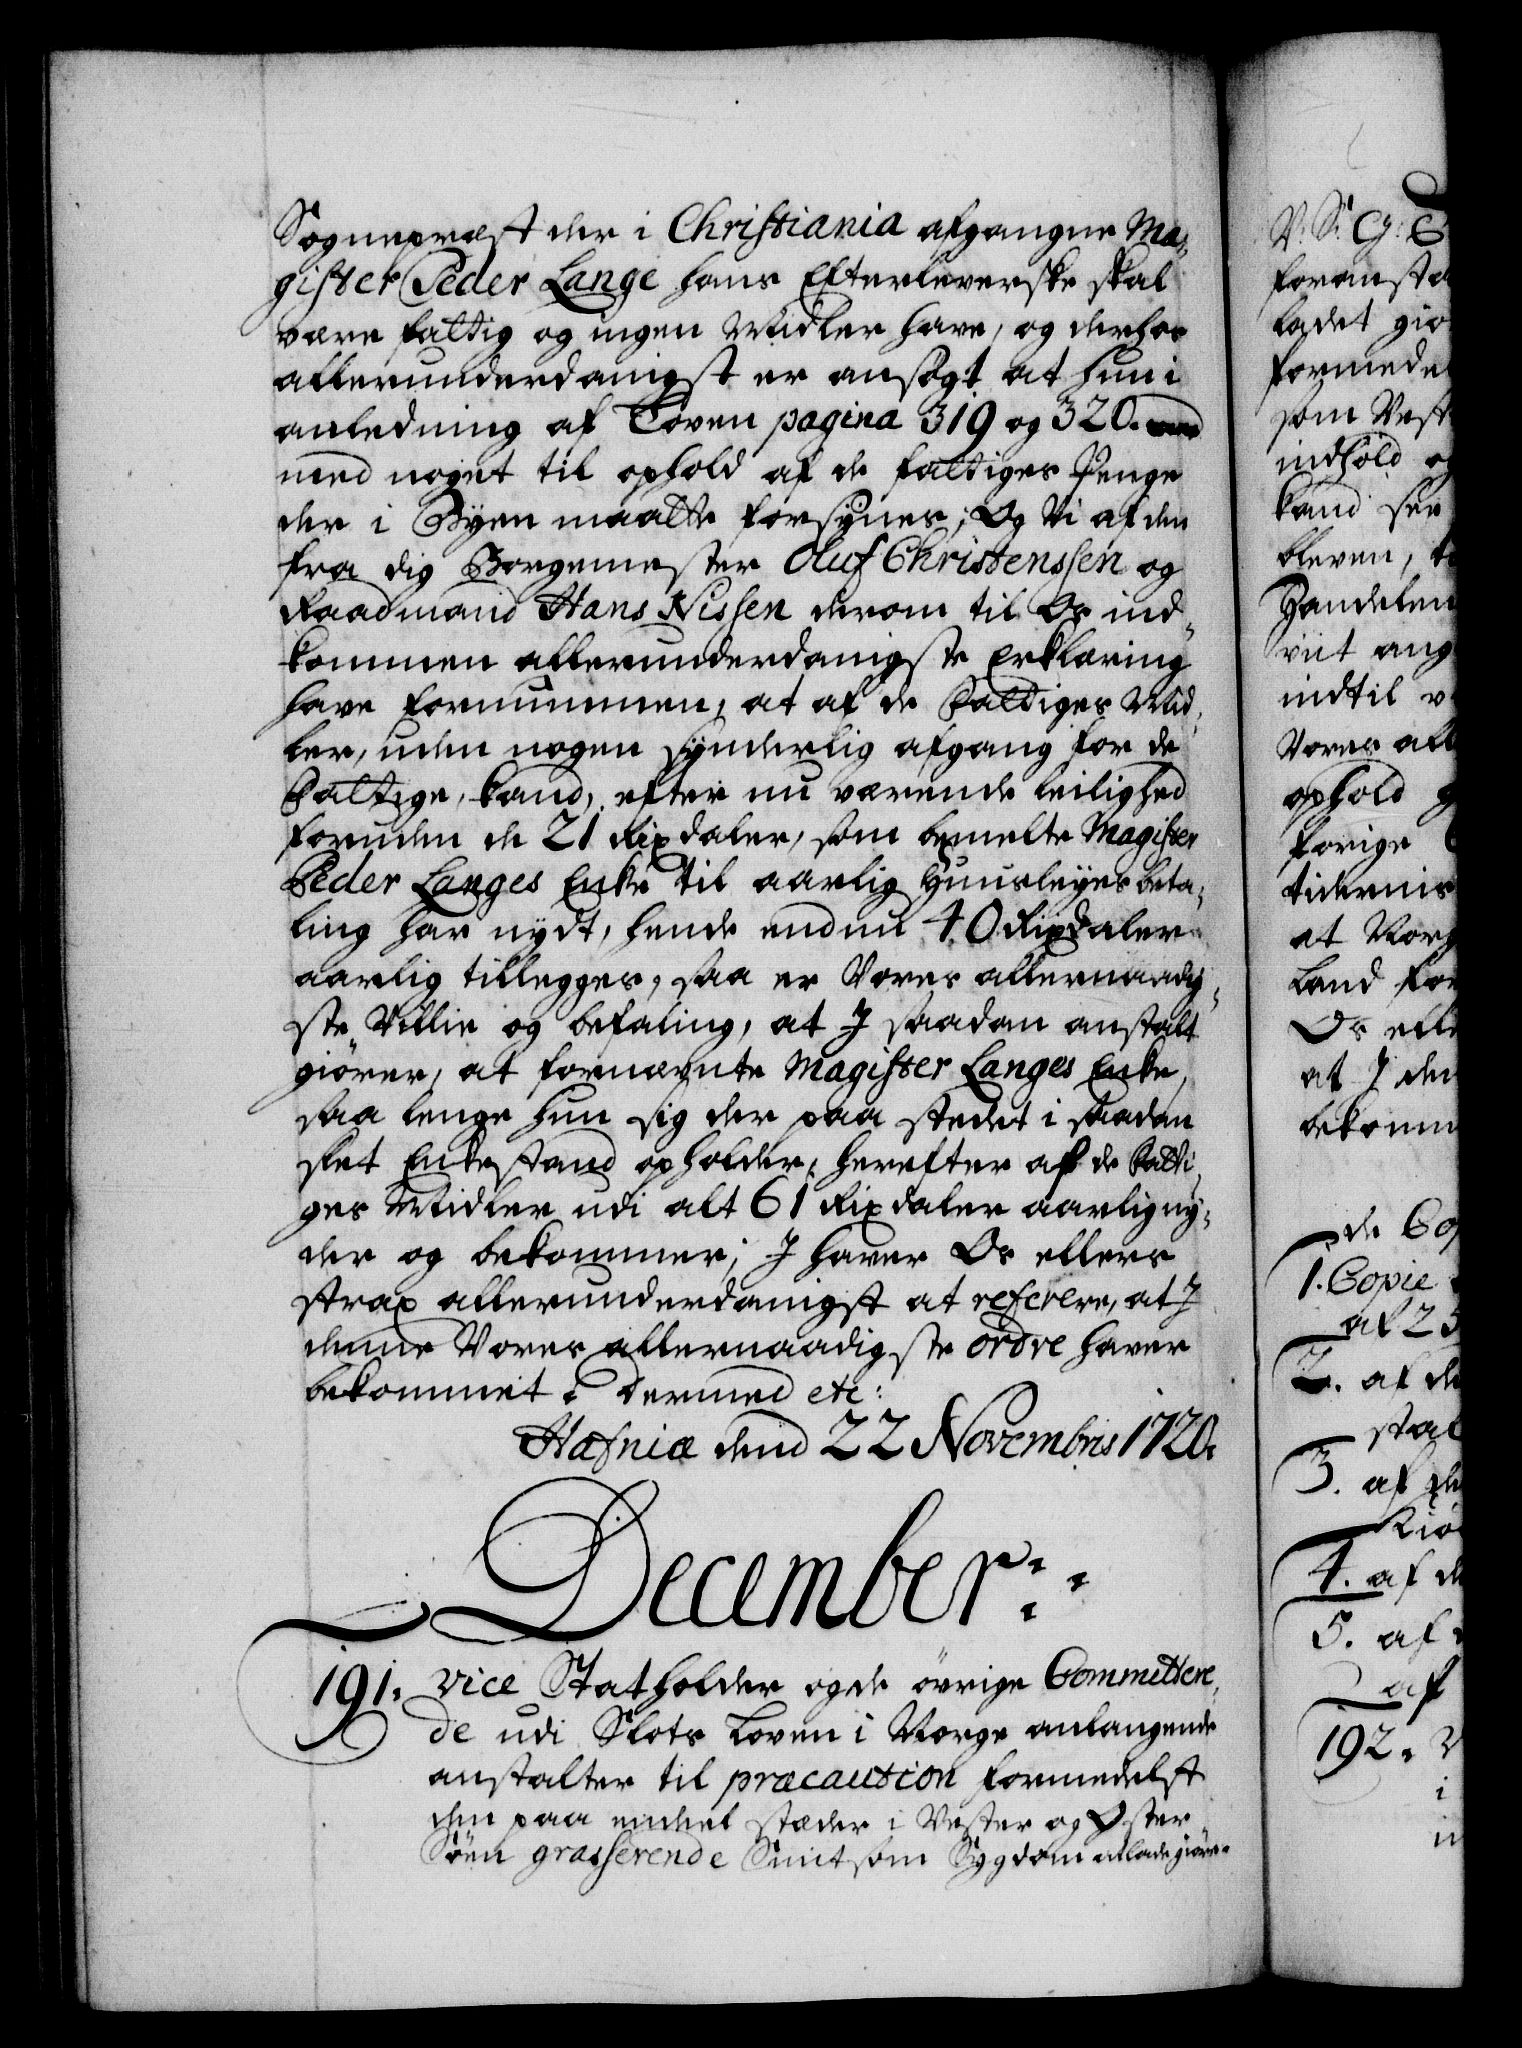 Sognepræst der i Christiania afgangne Ma¬
gister Peder Lange hans Efterleverske skal
være fattig og ingen Midler have, og derhos
allerunderdanigst er ansøgt at hun i
anledning af Loven pagina 319 og 320.
med noget til ophold af de fattiges Penge
der i Byen maatte forsynes; Og Vi af den
fra dig Borgemester Oluf Christenssen og
Raadmand Hans Nissen derom til Os ind¬
kommen allerunderdanigste Erklæring
have fornummen, at af de Fattiges Mid¬
ler, uden nogen synderlig afgang for de
Fattige, kand, efter nu værende leilighed
foruden de 21 Rixdaler, som bemelte Magister
Peder Langes Enke til aarlig Huusleyes beta¬
ling har nydt, hende endnu 40 Rixdaler
aarlig tillegges, saa er Vores allernaadig¬
ste Villie og befaling, at I saadan anstalt
giører, at fornævnte Magister Langes Enke,
saa lenge hun sig der paa stedet i saadan
slet Enkestand opholder, herefter af de Fatti¬
ges Midler udi alt 61 Rixdaler aarlig ny¬
der og bekommer; I haver Os ellers
strax allerunderdanigst at referere, at I
denne Vores allernaadigste ordre haver
bekommet. Dermed etc:
Hafniæ dend 22 Novembris 1720.
December:
191. Vice Statholder og de övrige Committere¬
de udi Slots Loven i Norge anlangende
anstalter til præcaution formedelst
den paa endeel stæder i Vester og Öster
Söen grasserende Smitsom Sygdom at lade giöre.
V. S. G: E
foransta
ladet giö
formede
som Vest
indhold og
kand see
bleven,
Handelen
viit ang
indtil v
Vores all
ophold g
forige
tidernis
at Norg
Land for
Os elle
at I den
bekomm
de Cop
1. Copie
af 25
2. af de
stal
3. af de
Kiö
4. af de
5. af
af
192. V
i